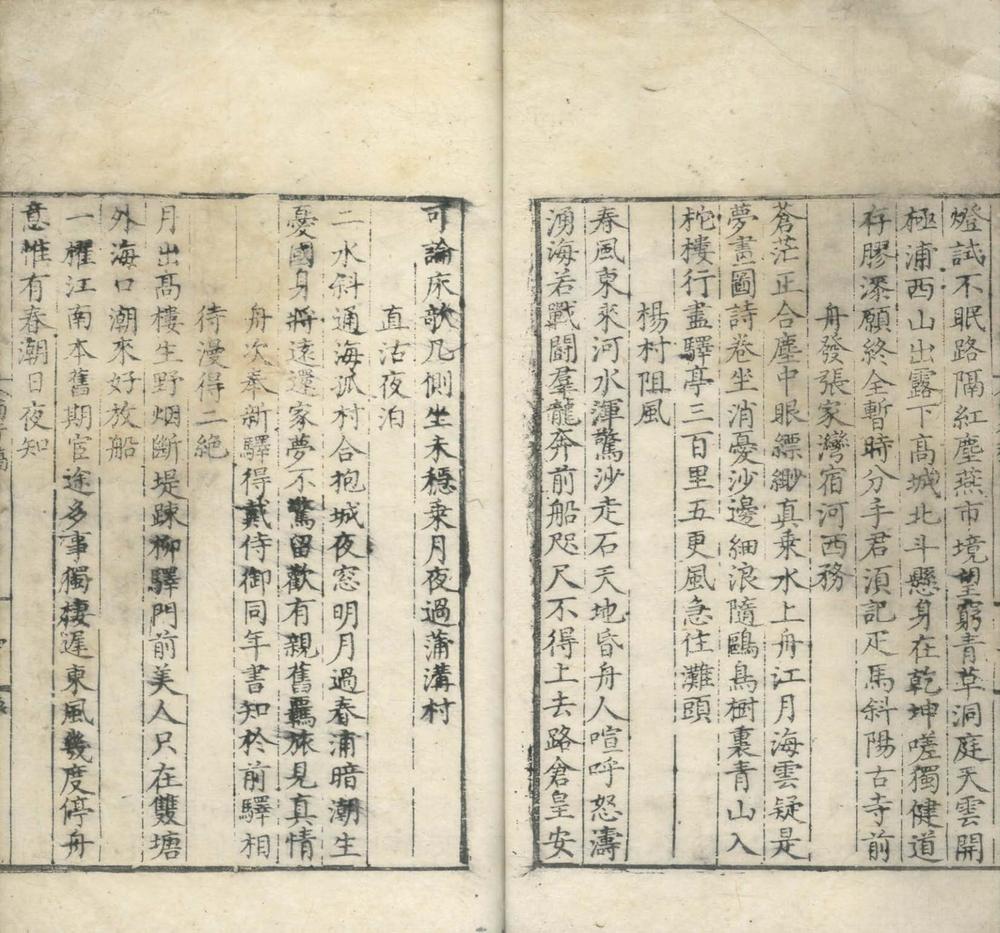 燈試不眠路隔紅塵燕市境望窮青草洞庭天雲開
極浦西山出露下高城北斗懸身在乾坤嗟獨健道
存膠漆願終全暫時分手君須記疋馬斜陽古寺前
舟發張家灣宿河西務
蒼茫正合塵中眼縹緲真乘水上舟江月海雲疑是
夢畫圖詩卷坐消憂沙邊細浪隨鷗鳥樹裏青山入
柁樓行盡驛亭三百里五更風急住灘頭
楊村阻風
春風東來河水渾驚沙走石天地昏舟人喧呼怒濤
湧海若戰鬪羣龍奔前船咫尺不得上去路倉皇安
可論床欹几側坐未穩乘月夜過蒲溝村
直沽夜泊
二水斜通海孤村合抱城夜窓明月過春浦暗潮生
憂國身將遠還家夢不驚留歡有親舊羈旅見真情
舟次奉新驛得戴侍御同年書知於前驛相
待漫得二絶
月出高樓生野烟斷堤踈柳驛門前美人只在雙塘
外海口潮來好放船
一櫂江南本舊期宦途多事獨棲遲東風幾度停舟
意惟有春潮日夜知